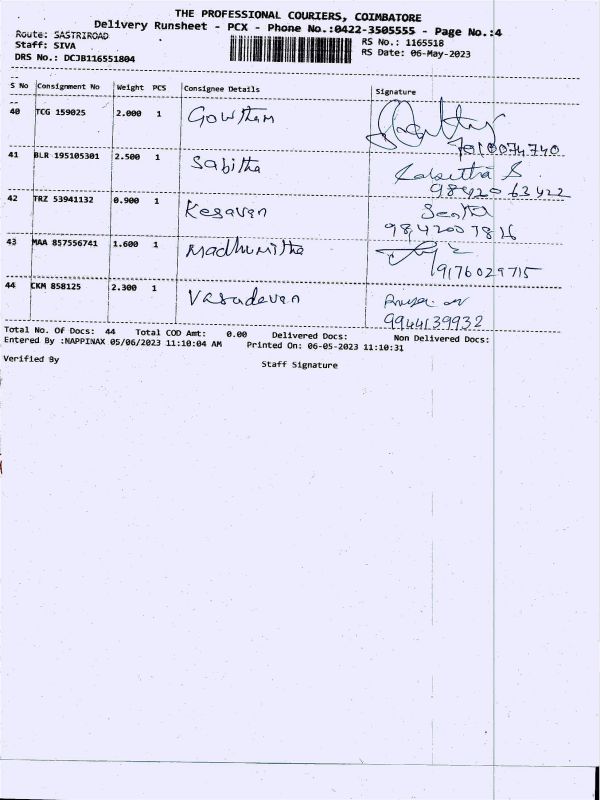 THE PROFESSIONAL COURIERS, COIMBATORE
Delivery Runsheet - PCX - Phone No.:0422-3505555 - Page No.:4
Route: SASTRIROAD RS No.: 1165518
Staff: SIVA RS Date: 06-May-2023
DRS No.: DCJB116551804
S No Consignment No Weight PCS Consignee Details Signature
40 TCG 159025 2.000 1 Gowtham
7010074740
41 BLR 195105301 2.500 1 Sabitha Sabitha S
98420 63422
42 TRZ 53941132 0.900 1 Kesavan
98,42007816
43 MAA 857556741 1.600 1 Madhumitha
9176029715
44 CKM 858125 2.300 1 Vasudevan
9944139932
Total No. Of Docs: 44 Total COD Amt: 0.00 Delivered Docs: Non Delivered Docs:
Entered By :NAPPINAX 05/06/2023 11:10:04 AM Printed On: 06-05-2023 11:10:31
Verified By Staff Signature